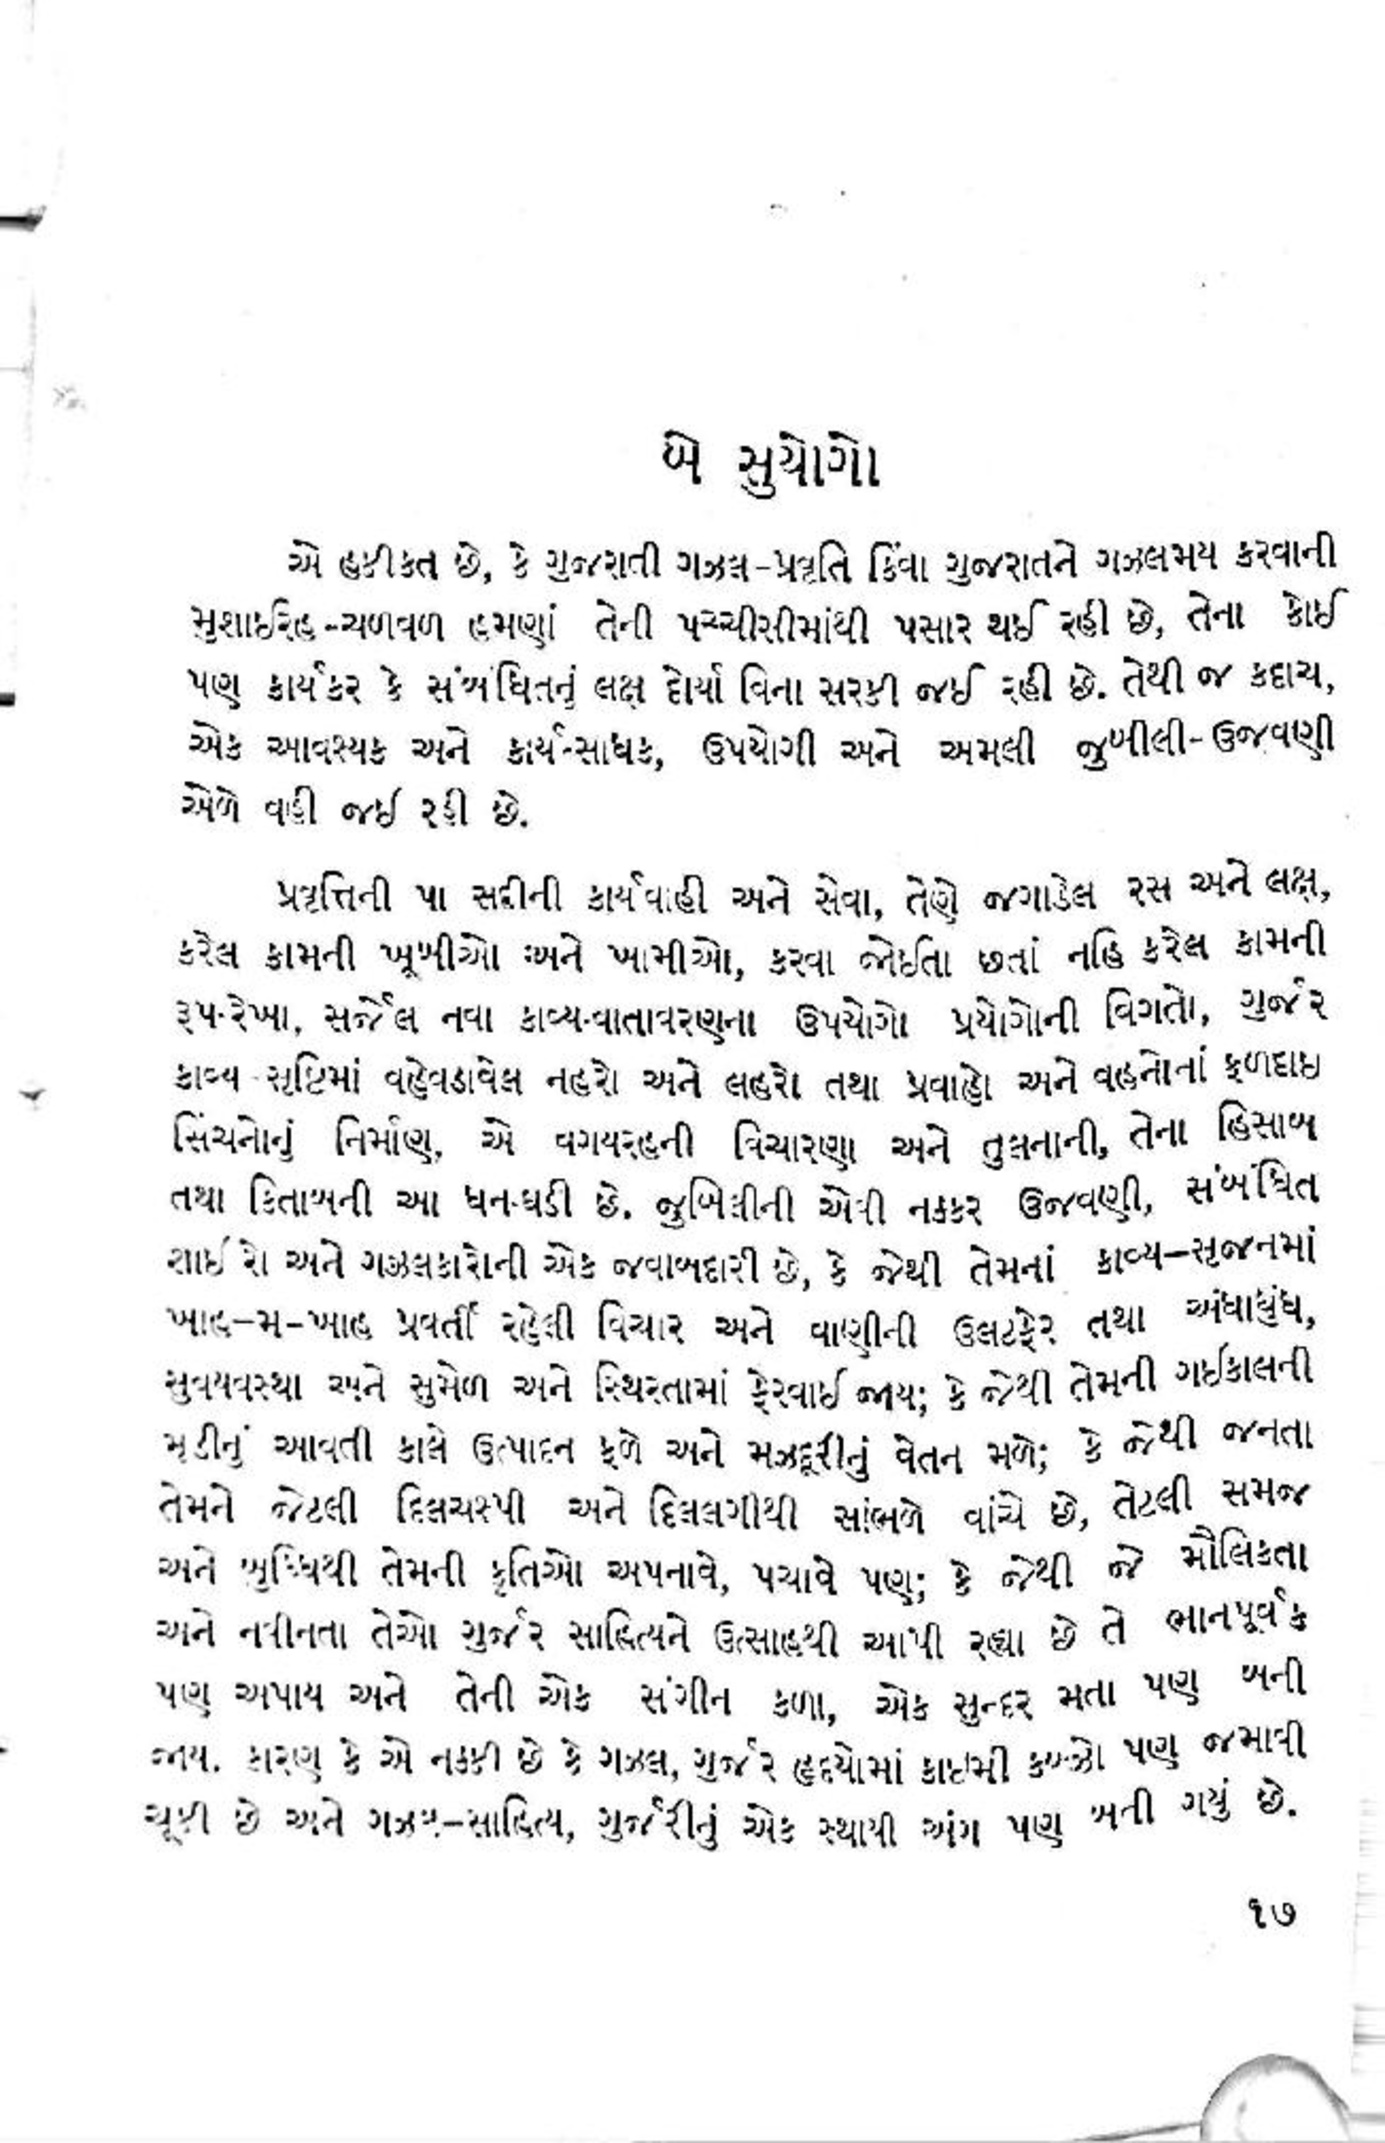 બે સુયોગો
એ હકીકત છે, કે ગુજરાતી ગઝલ-પ્રવૃતિ કિંવા ગુજરાતને ગઝલમય કરવાની
મુશાઇરહ-ચળવળ હમણાં તેની પચ્ચીસીમાંથી પસાર થઈ રહી છે, તેના કોઈ
પણ કાર્યકર કે સંબંધિતનું લક્ષ દોર્યા વિના સરકી જઈ રહી છે. તેથી જ કદાચ,
એક આવશ્યક અને કાર્ય-સાધક, ઉપયોગી અને અમલી જુબીલી-ઉજવણી
એળે વહી જઈ રહી છે.
પ્રવૃત્તિની પા સદીની કાર્યવાહી અને સેવા, તેણે જગાડેલ રસ અને લક્ષ,
કરેલ કામની ખૂબીઓ અને ખામીઓ, કરવા જોઈતા છતાં નહિ કરેલ કામની
રૂપ-રેખા, સર્જેલ નવા કાવ્ય-વાતાવરણના ઉપયોગો પ્રયોગોની વિગતો, ગુર્જર
કાવ્ય-સૃષ્ટિમાં વહેવડાવેલ નહરો અને લહરો તથા પ્રવાહો અને વહનોનાં ફળદાઇ
સિંચનોનું નિર્માણ, એ વગયરહની વિચારણા અને તુલનાની, તેના હિસાબ
તથા કિતાબની આ ધન-ઘડી છે. જુબિલીની એવી નક્કર ઉજવણી, સંબંધિત
શાઈરો અને ગઝલકારોની એક જવાબદારી છે, કે જેથી તેમનાં કાવ્ય–સૃજનમાં
ખાહ–મ–ખાહ પ્રવર્તી રહેલી વિચાર અને વાણીની ઉલટફેર તથા અંધાધુંધ,
સુવયવસ્થા અને સુમેળ અને સ્થિરતામાં ફેરવાઈ જાય; કે જેથી તેમની ગઈકાલની
મૂડીનું આવતી કાલે ઉત્પાદન ફળે અને મઝદૂરીનું વેતન મળે; કે જેથી જનતા
તેમને જેટલી દિલચસ્પી અને દિલલગીથી સાંભળે વાંચે છે, તેટલી સમજ
અને બુધ્ધિથી તેમની કૃતિઓ અપનાવે, પચાવે પણ; કે જેથી જે મૌલિકતા
અને નવીનતા તેઓ ગુર્જર સાહિત્યને ઉત્સાહથી આપી રહ્યા છે તે ભાનપૂર્વક
પણ અપાય અને તેની એક સંગીન કળા, એક સુન્દર મતા પણ બની
જાય. કારણ કે એ નક્કી છે કે ગઝલ, ગુર્જર હૃદયોમાં કાઇમી કબ્ઝો પણ જમાવી
ચૂકી છે અને ગઝલ–સાહિત્ય, ગુર્જરીનું એક સ્થાયી અંગ પણ બની ગયું છે.
૧૭